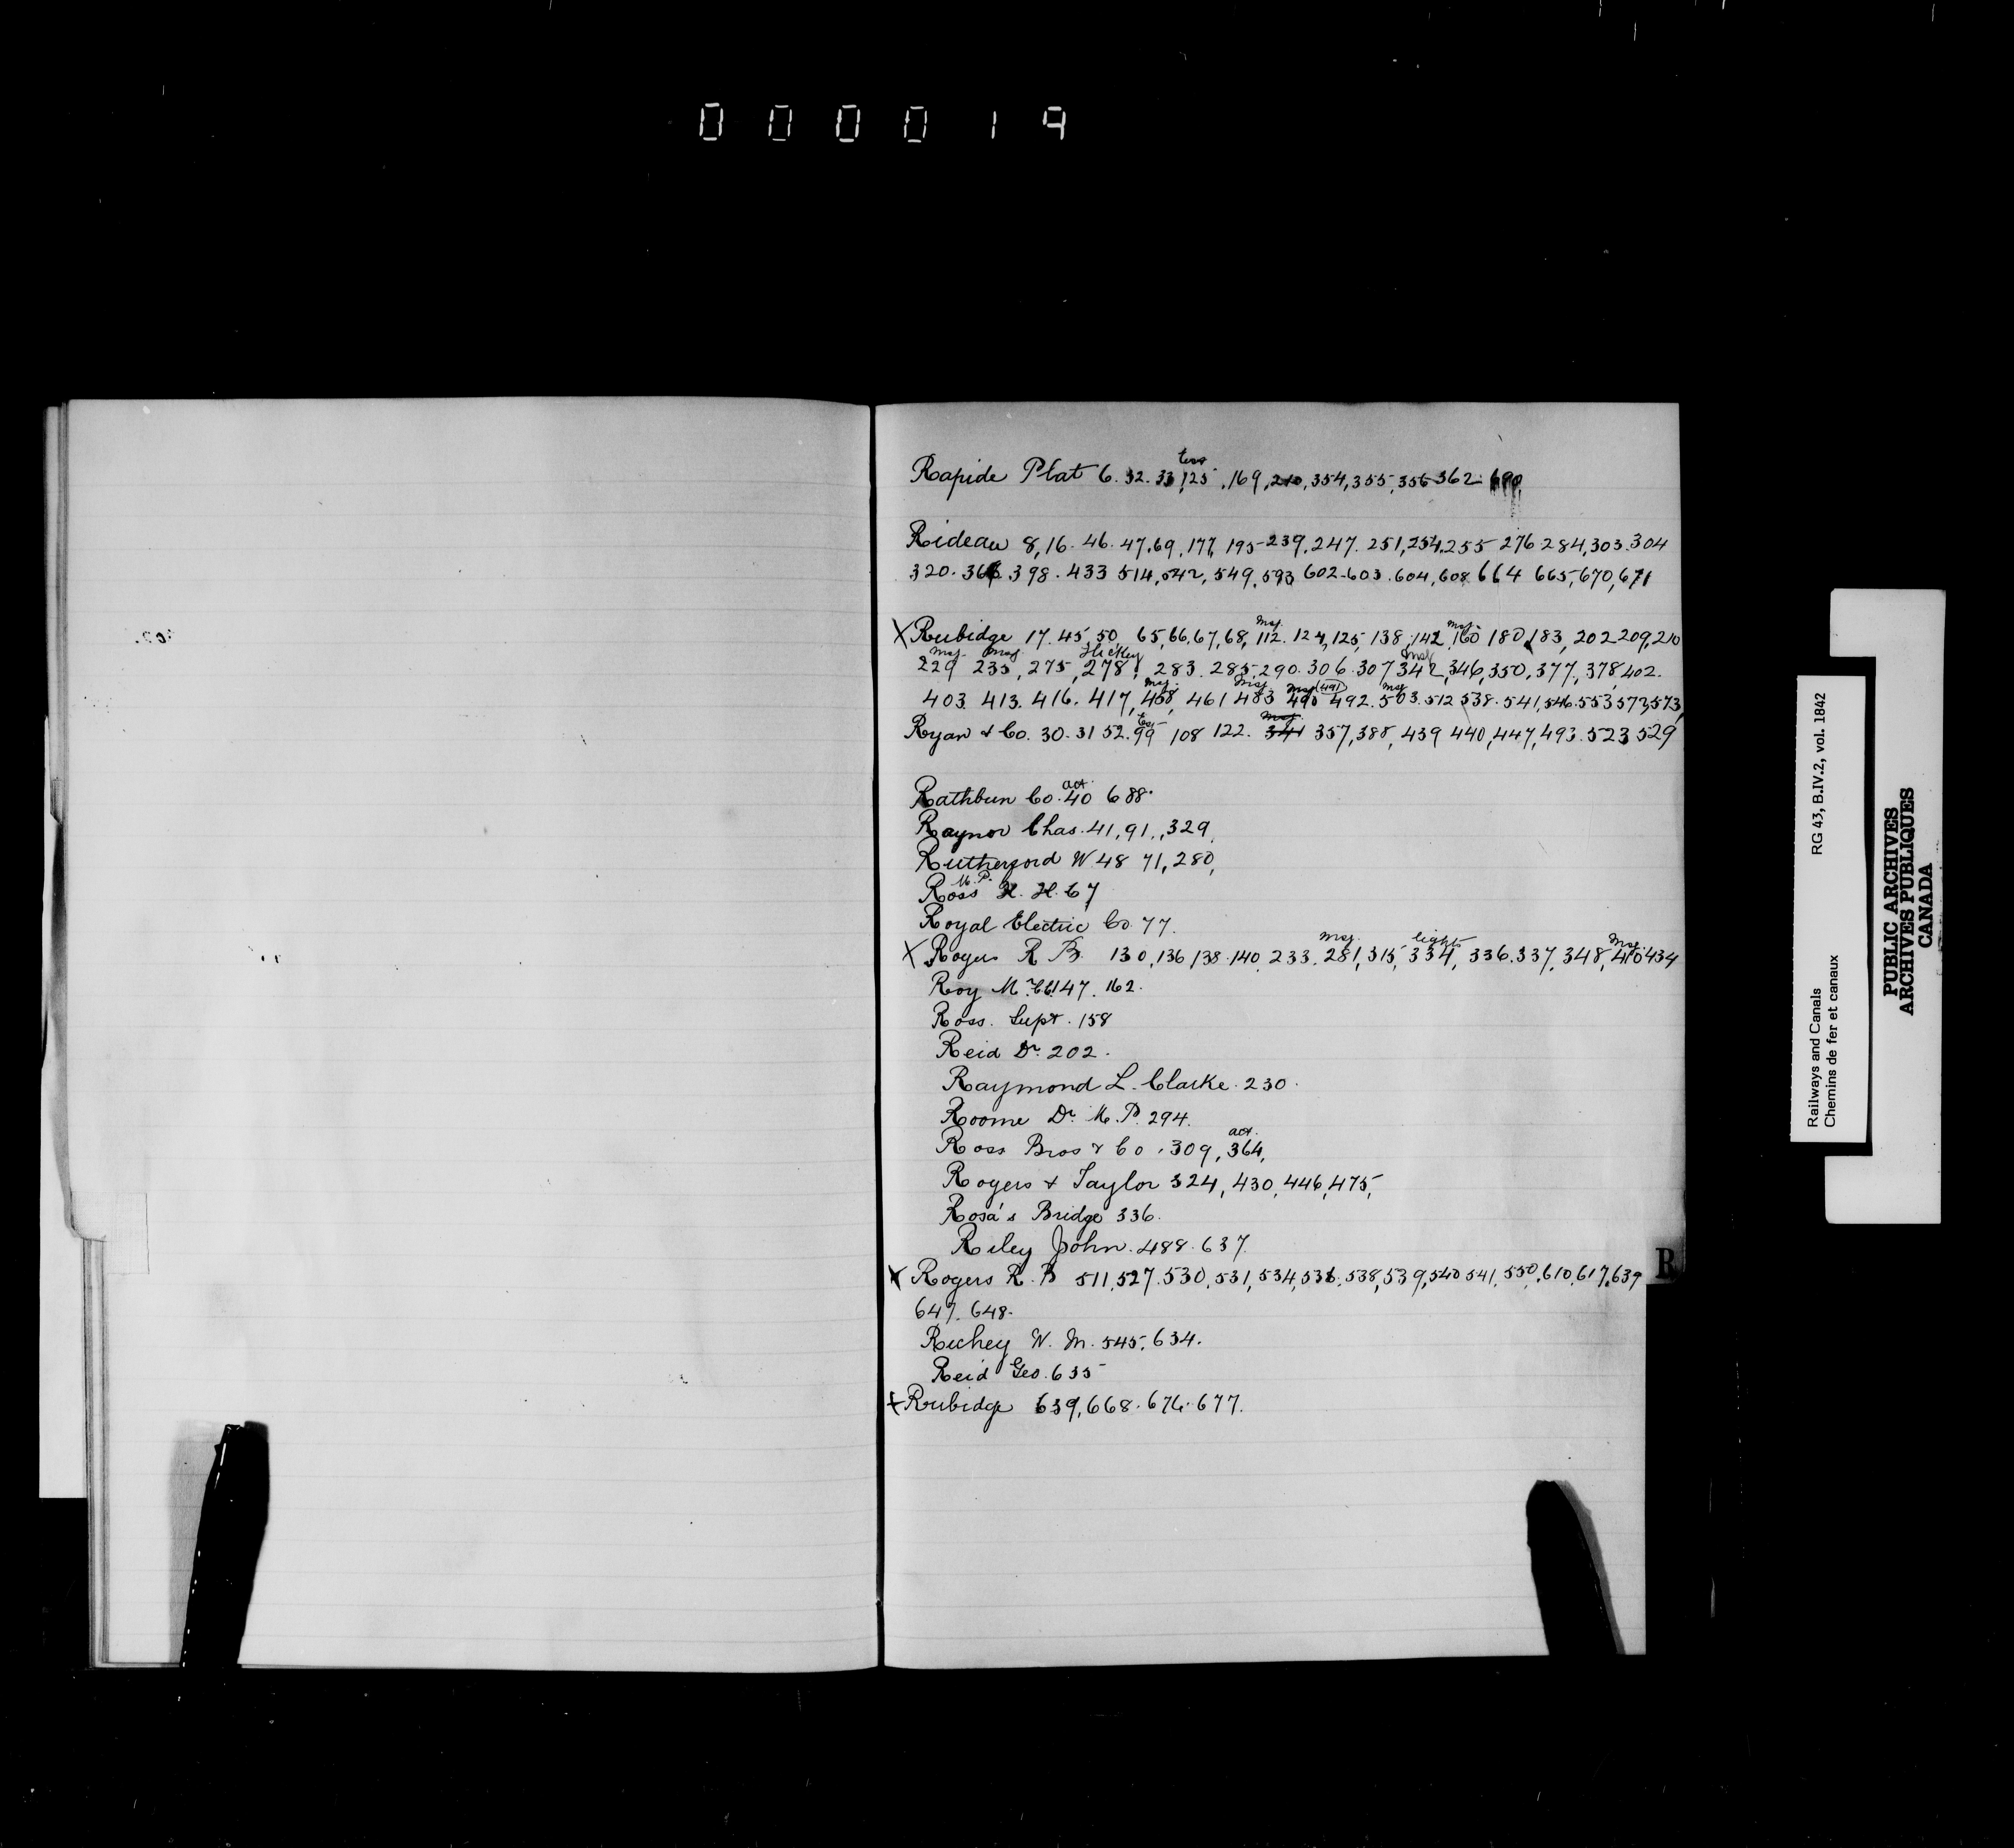 000019
tens
Rapide Plat 6. 32. 33, 125, 169, 210, 354, 355, 356 362. 690
Rideau 8, 16. 46. 47. 69, 177, 195 239. 247. 251, 254. 255 276 284, 303. 304
320. 366 398. 433 514, 542, 549, 593 602. 603. 604, 608 664 665, 670, 671
msg. msg.
X Rubidge 17. 45, 50, 65, 66, 67, 68, 112. 124, 125, 138, 142, 160 180, 183, 202 209, 210
msg. msg. Hickley
229 235, 275, 278, 283. 285, 290. 306. 307 342, 346, 350, 377, 378, 402.
msg. msg. msg (491) msg
403. 413. 416. 417, 458, 461 483 490 492. 503. 512 538. 541, 546. 553, 573, 573,
msg.
Ryan & Co. 30. 31 52. 99 108 122. 341 357, 388, 439 440, 447, 493. 523 529
act.
Rathbun Co. 40 688.
Raynor Chas. 41, 91, 329,
Rutherford W. 48 71, 280,
M. P.
Ross H. H. 67
Royal Electric Co. 77.
msg. light msg.
X Rogers R B. 130, 136, 138. 140, 233, 281, 315, 334, 336. 337, 348, 410 434
Roy M. 147. 162.
Ross. Supt. 158
Reid Dr. 202.
Raymond L. Clarke. 230.
Roome Dr. M. P. 294.
act.
Ross Bros & Co. 309, 364,
Rogers & Taylor 324, 430, 446, 475,
Rosa's Bridge 336.
Riley John. 488. 637.
R
X Rogers R. B 511, 527. 530, 531, 534, 536, 538, 539, 540 541, 550, 610, 617, 639
647. 648.
Richey W. M. 545, 634.
Reid Geo. 635
X Rubidge 639, 668. 676. 677.
Railways and Canals RG 43, B.IV.2, vol. 1842
Chemins de fer et canaux
PUBLIC ARCHIVES
ARCHIVES PUBLIQUES
CANADA